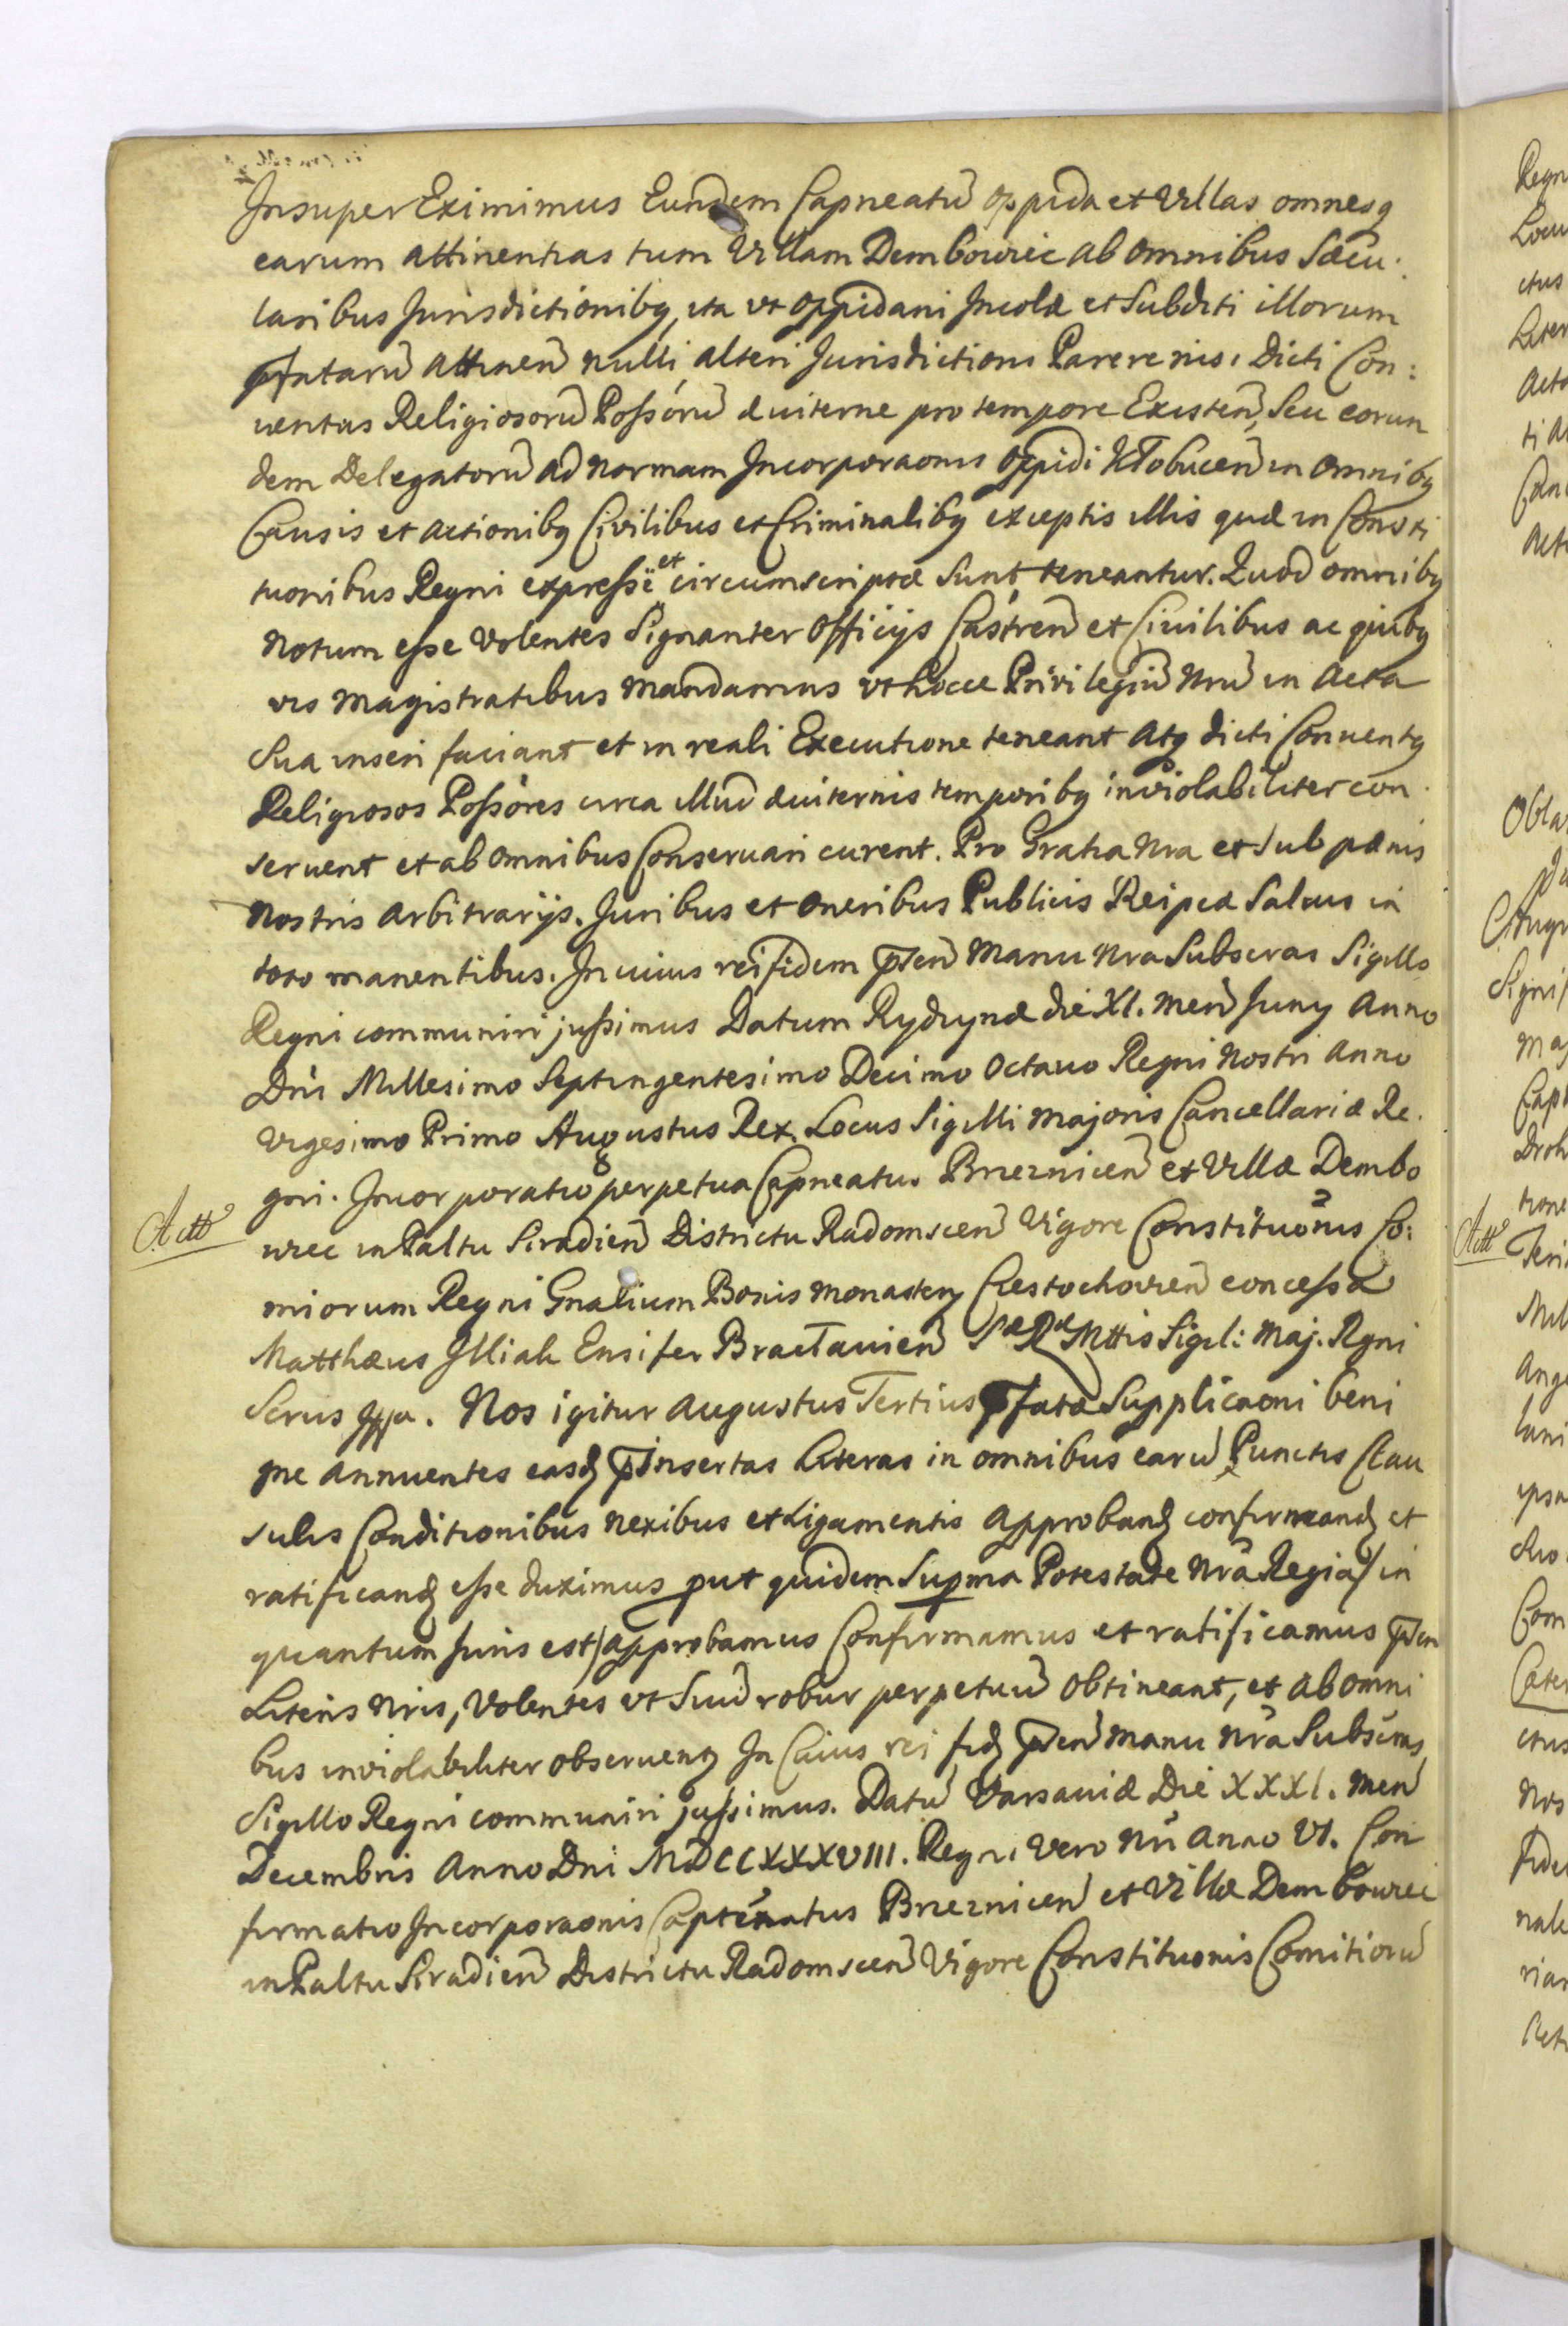 Insuper Eximimus Eundem Capneatũ oppida et Villas omnesq
earum attinentias tum Villam Dembowiec ab omnibus Sæcu:
laribus Jurisdictionibq, ita vt oppidani Incolæ et Subditi illorum
pfatarũ Attinen̄ nulli alteri Jurisdictioni Parere nisi Dicti Con:
uentus Religiosorũ Possórũ æuiterne pro tempore Existen̄, Seu eorun
dem Delegatorũ ad normam Incorporaonis oppidi Kłobucen̄ in omnibq
Causis et actionibq Civilibus et Criminalibq exceptis illis quæ in Consti
tuonibus Regni expresse et circumscriptæ Sunt, teneantur. Quod omnibq
Notum esse Volentes Signanter Officijs Castren̄ et Ciuilibus ac quibq
vis Magistratibus Mandamus vt hocce Privilegiũ Nrũ in Acta
Sua inseri faciant et in reali Executione teneant Atq dicti Conuentq
Religiosos Possóres circa illud æuiternis temporibq inviolabiliter con:
seruent et ab omnibus Conseruari curent. Pro Gratia Nra et sub pænis
Nostris Arbitrarijs. Juribus et oneribus Publicis Reipcæ Saluis in
toto manentibus. In cuius rei fidem p̄sen̄ Manu Nra Subscras Sigillo
Regni communiri jussimus Datum Rydzynæ die XI. Men̄ Juny Anno
Dn̄i Millesimo Septingentesimo Decimo Octauo Regni Nostri Anno
Vigesimo Primo Augustus Rex. Locus Sigilli Majoris Cancellariæ Re.
gni. Incorporatio perpetua Capneatus Brzeznicen̄ et Villæ Dembo
Actt
wiec in Paltu Siradien̄ Districtu Radomscen̄ Vigore Constituonis Co:
miorum Regni Gnalium Bonis Monastery Cżestochovien̄ concessa
Matthæus Illiak Ensifer Bracłauien̄ Sæ Ræ Mttis Sigil: Maj. Rgni
Scrus mppa. Nos igitur Augustus Tertius p̄fatæ Supplicaoni beni
gne annuentes easđ p̄insertas Literas in omnibus earũ Punctis Clau
sulis Conditionibus nexibus et Ligamentis approbanđ confirmanđ et
ratificanđ esse duximus put quidem Supma Potestate Nra Regia /in
quantum Juris est/ approbamus Confirmamus et ratificamus p̄sen
Literis Nris, Volentes vt Suũ robur perpetuũ obtineant, et ab omni
bus inviolabiliter obseruenq In Cuius rei fiđ p̄sen̄ Manu Nra Subscras,
Sigillo Regni communiri jussimus. Datũ Varsaviæ Die XXXI. Men̄
Decembris Anno Dni MDCCXXXVIII. Regni Vero Nri Anno VI. Con
firmatio Incorporaonis Captēnatus Brzeznicen̄ et Villæ Dembowiec
in Paltu Siradien̄ Districtu Radomscen̄ Vigore Constituonis Comitiorũ